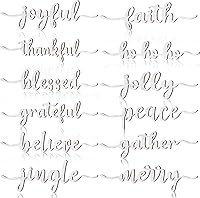 joyful faith
thankful ho ho ho
blessed jolly
grateful peace
believe gather
jingle merry